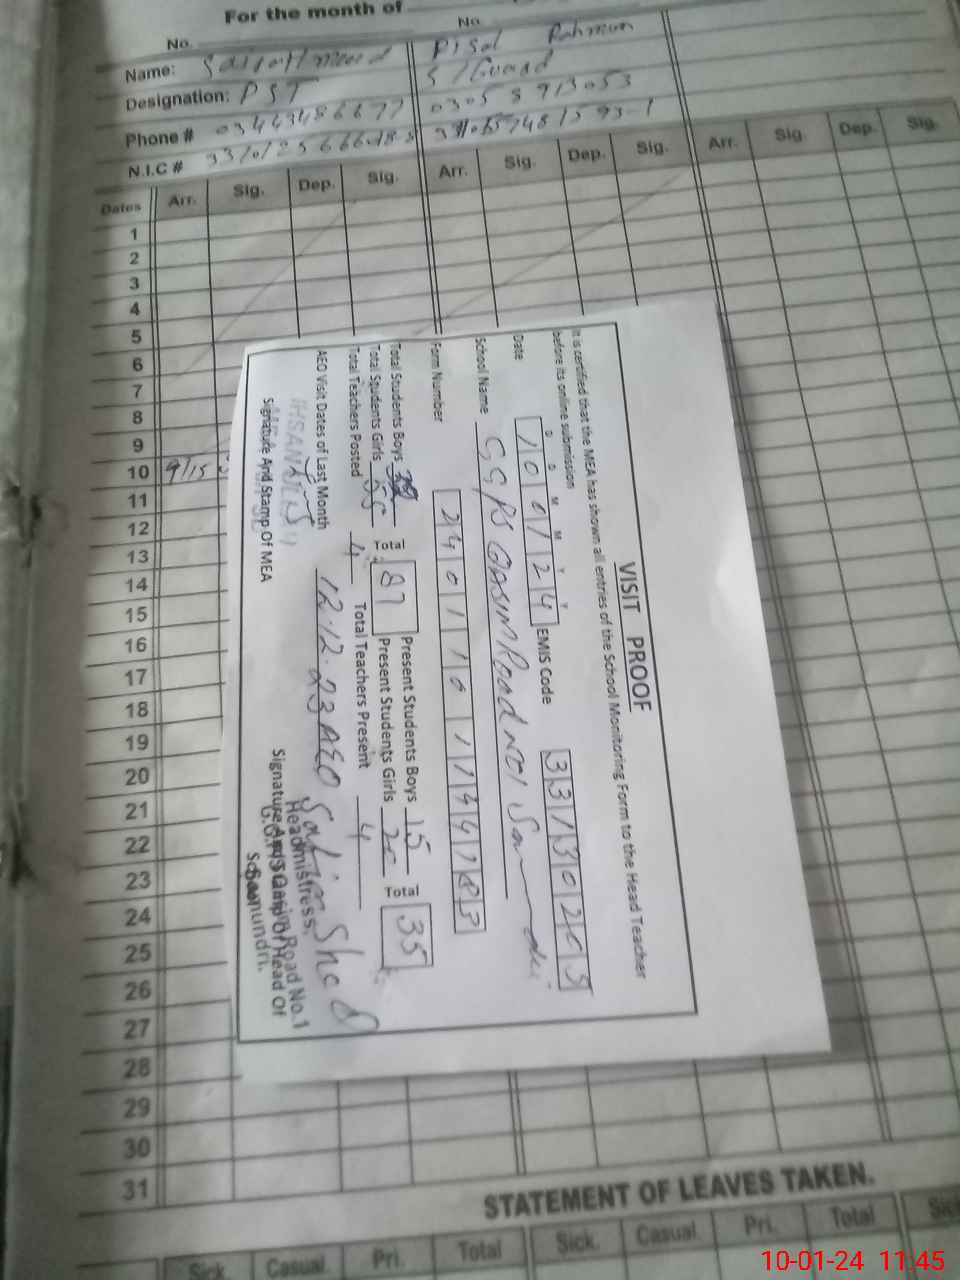 For the month of
No.
No.
Name:
Designation: PST S/Guard
Phone # 03443486677 0305 5913053
N.I.C #
Dates Arr. Sig. Dep. Sig. Arr. Sig. Dep. Sig. Arr. Sig Dep. Sig.
1
2
3
4
5
6
7
8
9
10 9/15
11
12
13
14
15
16
17
18
19
20
21
22
23
24
25
26
27
28
29
30
31
VISIT PROOF
It is certified that the MEA has shown all entries of the School Monitoring Form to the Head Teacher
before its online submission
D D M M Y Y
Date 100124 EMIS Code 33130203
School Name GGPS QASIM Road NO1
Form Number 2401101144183
Total Students Boys Present Students Boys 15
Total Students Girls 55 Total 87 Present Students Girls 20 Total 35
Total Teachers Posted 4 Total Teachers Present 4
AEO Visit Dates of Last Month 12.12.23 AEO
IHSAN
Signature And Stamp Of MEA
Signature And Stamp Of Head Of
School
Headmistress,
G.G.P/S Qasim Road No.1
Samundri.
STATEMENT OF LEAVES TAKEN.
Sick. Casual. Pri. Total Sick. Casual. Pri. Total Sick
10-01-24 11:45